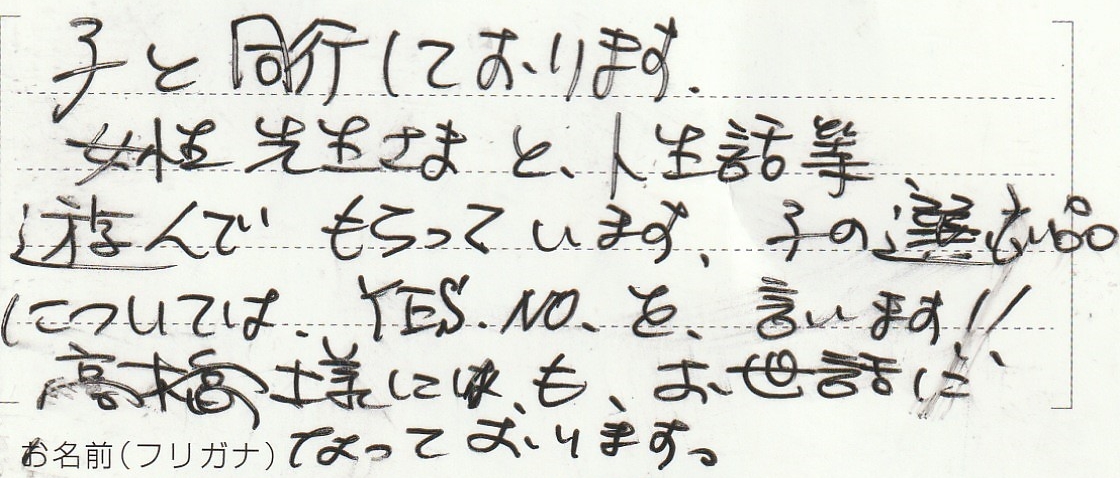 子と同行しております.
女性先生さまと、人生話等
遊んでもらっています、子の選ぶ品
については、YES.NO.を、言います!!
高橋様にはも、お世話に
なっております。
お名前(フリガナ)